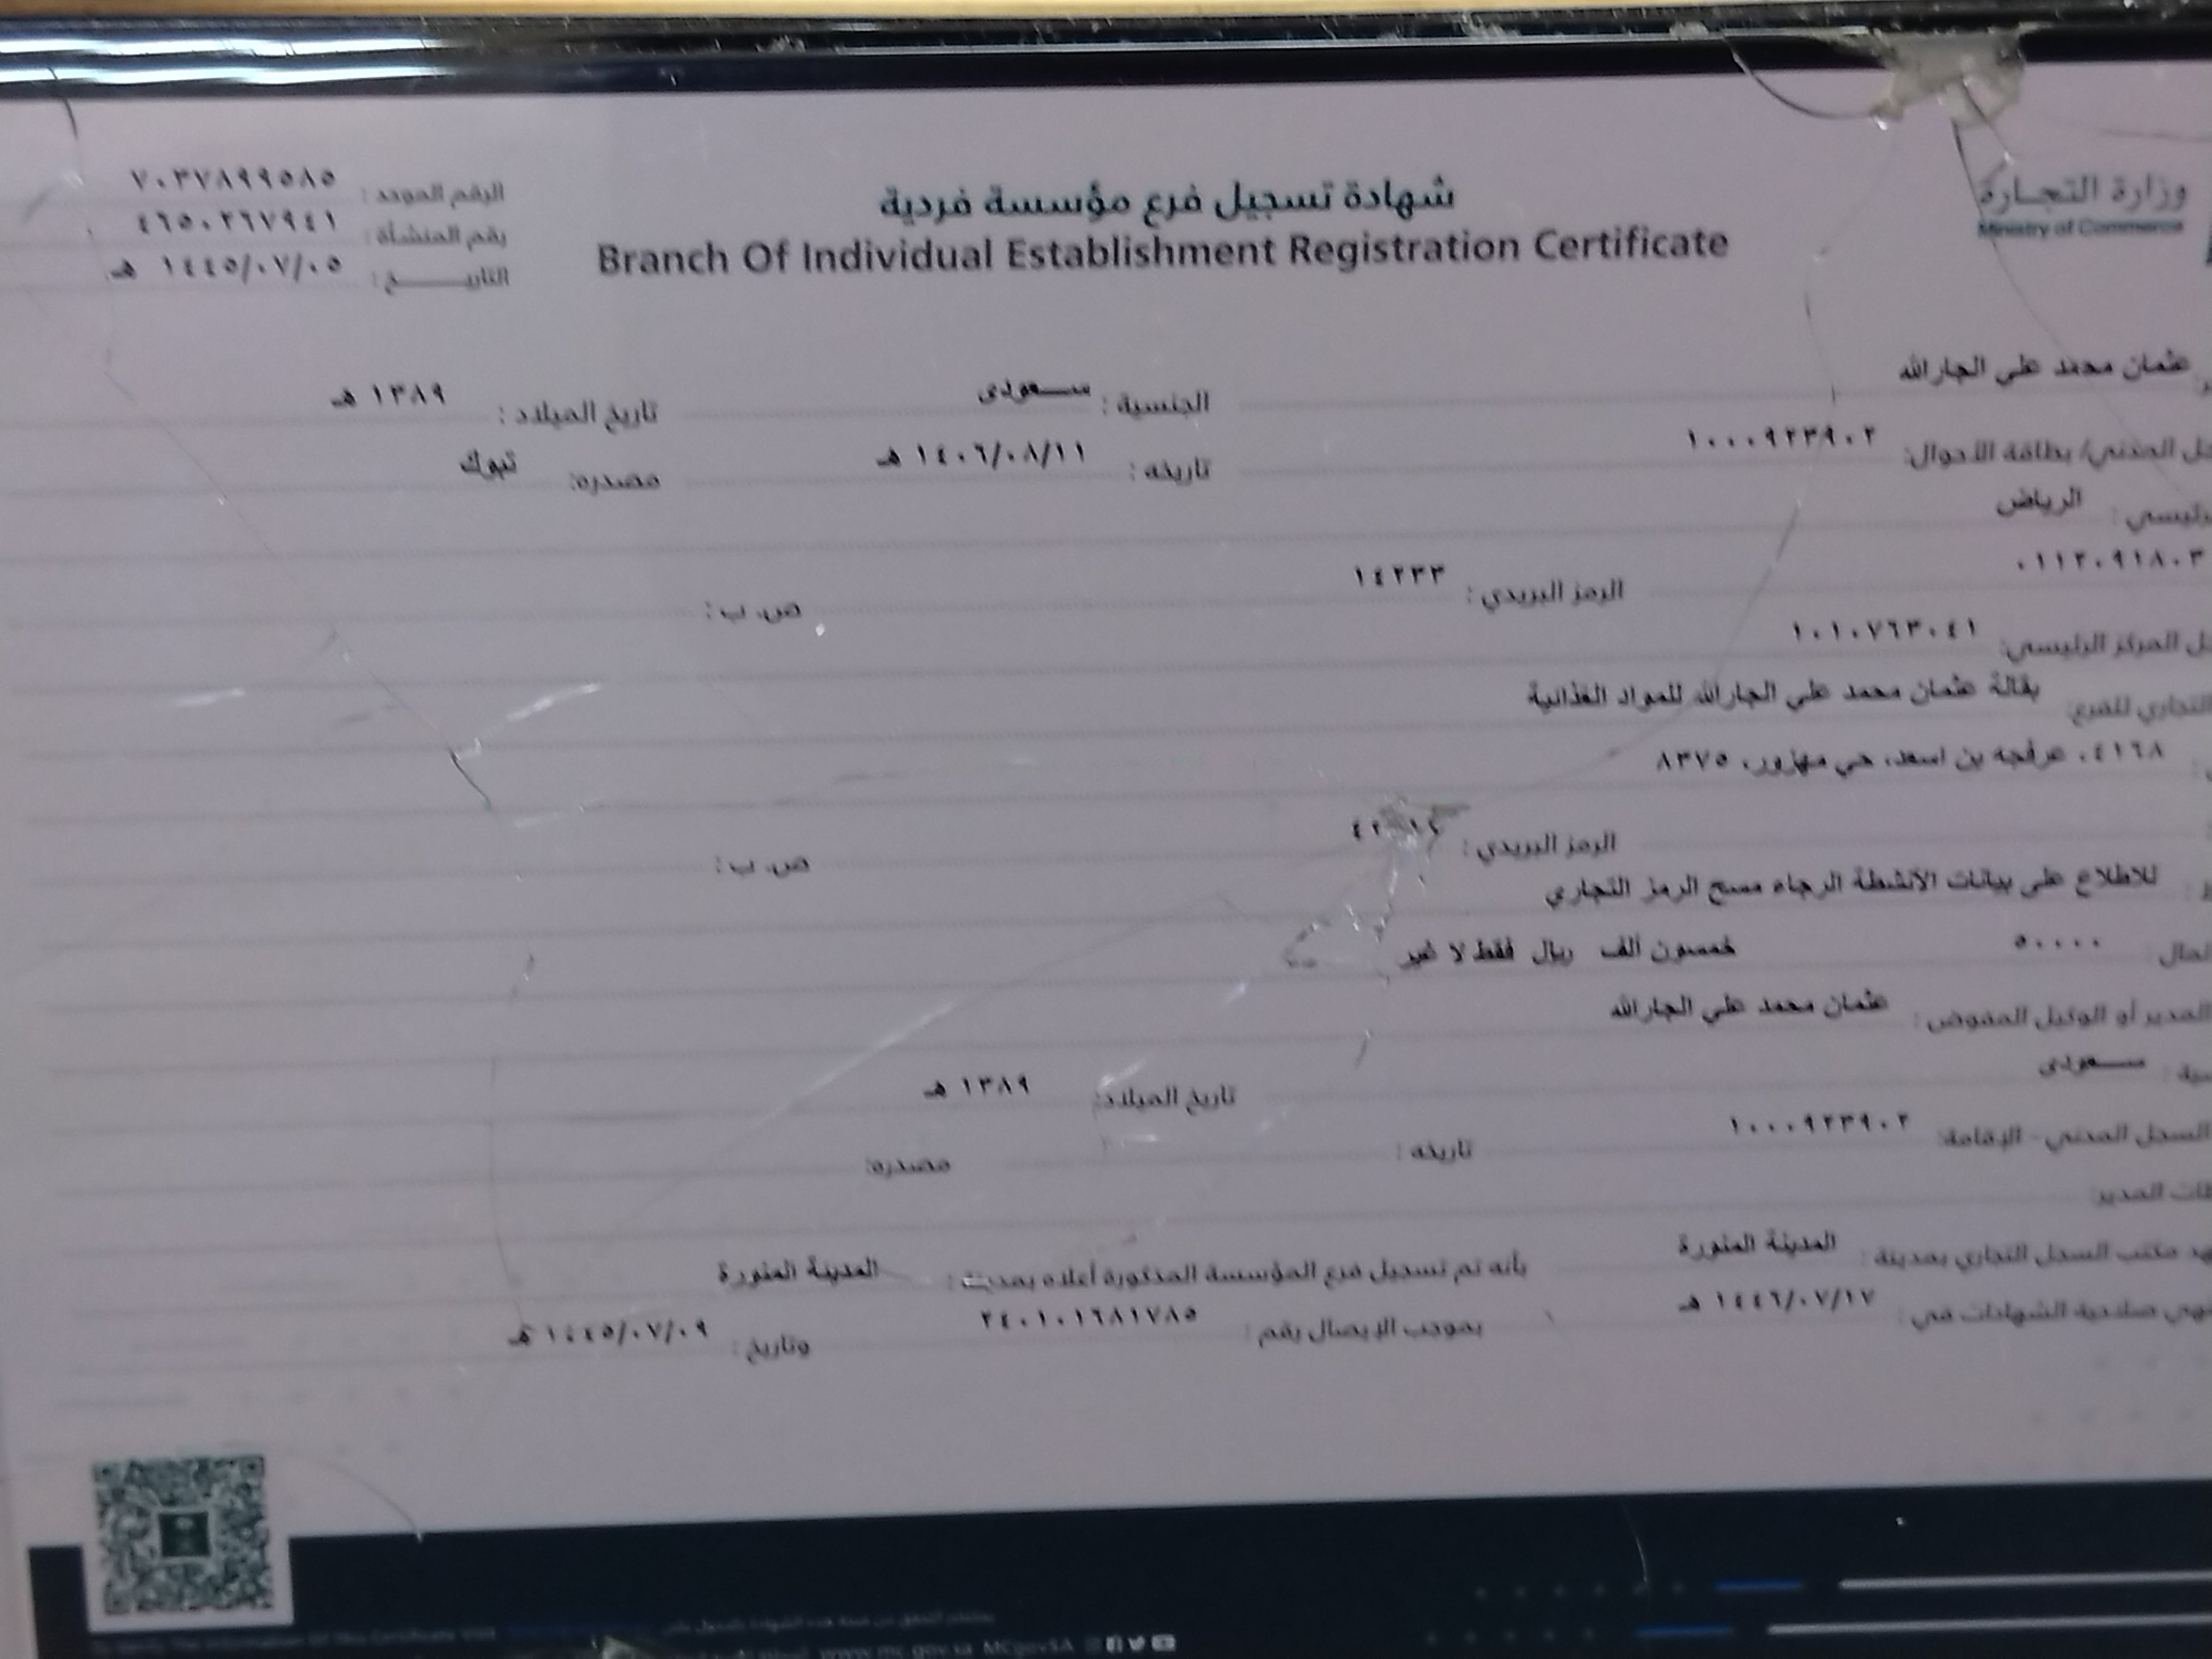 وزارة التجارة
Ministry of Commerce
شهادة تسجيل فرع مؤسسة فردية
Branch Of Individual Establishment Registration Certificate
الرقم الموحد : ٧٠٣٧٨٩٩٥٨٥
رقم المنشأة : ٤٦٥٠٢٦٧٩٤١
التاريـــــــخ : ١٤٤٥/٠٧/٠٥ هـ
عثمان محمد علي الجارالله الجنسية : سـعودى تاريخ الميلاد : ١٣٨٩ هـ
المدني/ بطاقة الأحوال: ١٠٠٠٩٢٣٩٠٢ تاريخه : ١٤٠٦/٠٨/١١ هـ مصدره: تبوك
الرياض
٠١١٢٠٩١٨٠٣ الرمز البريدي : ١٤٢٣٣ ص. ب :
المركز الرئيسي: ١٠١٠٧٦٣٠٤١
التجاري للفرع: بقالة عثمان محمد علي الجارالله للمواد الغذائية
٤١٦٨، عرفجه بن اسعد، حي مهزور، ٨٣٧٥
الرمز البريدي : ص. ب :
للاطلاع على بيانات الأنشطة الرجاء مسح الرمز التجاري
٥٠٠٠٠ خمسون ألف ريال فقط لا غير
المدير أو الوكيل المفوض : عثمان محمد علي الجارالله
سـعودى تاريخ الميلاد: ١٣٨٩ هـ
السجل المدني - الإقامة: ١٠٠٠٩٢٣٩٠٢ تاريخه : مصدره:
المدير:
مكتب السجل التجاري بمدينة : المدينة المنورة بأنه تم تسجيل فرع المؤسسة المذكورة أعلاه بمدينة : المدينة المنورة
صلاحية الشهادات في : ١٤٤٦/٠٧/١٧ هـ بموجب الإيصال رقم : ٢٤٠١٠١٦٨١٧٨٥ وتاريخ : ١٤٤٥/٠٧/٠٩ هـ
www.mc.gov.sa MCgovSA